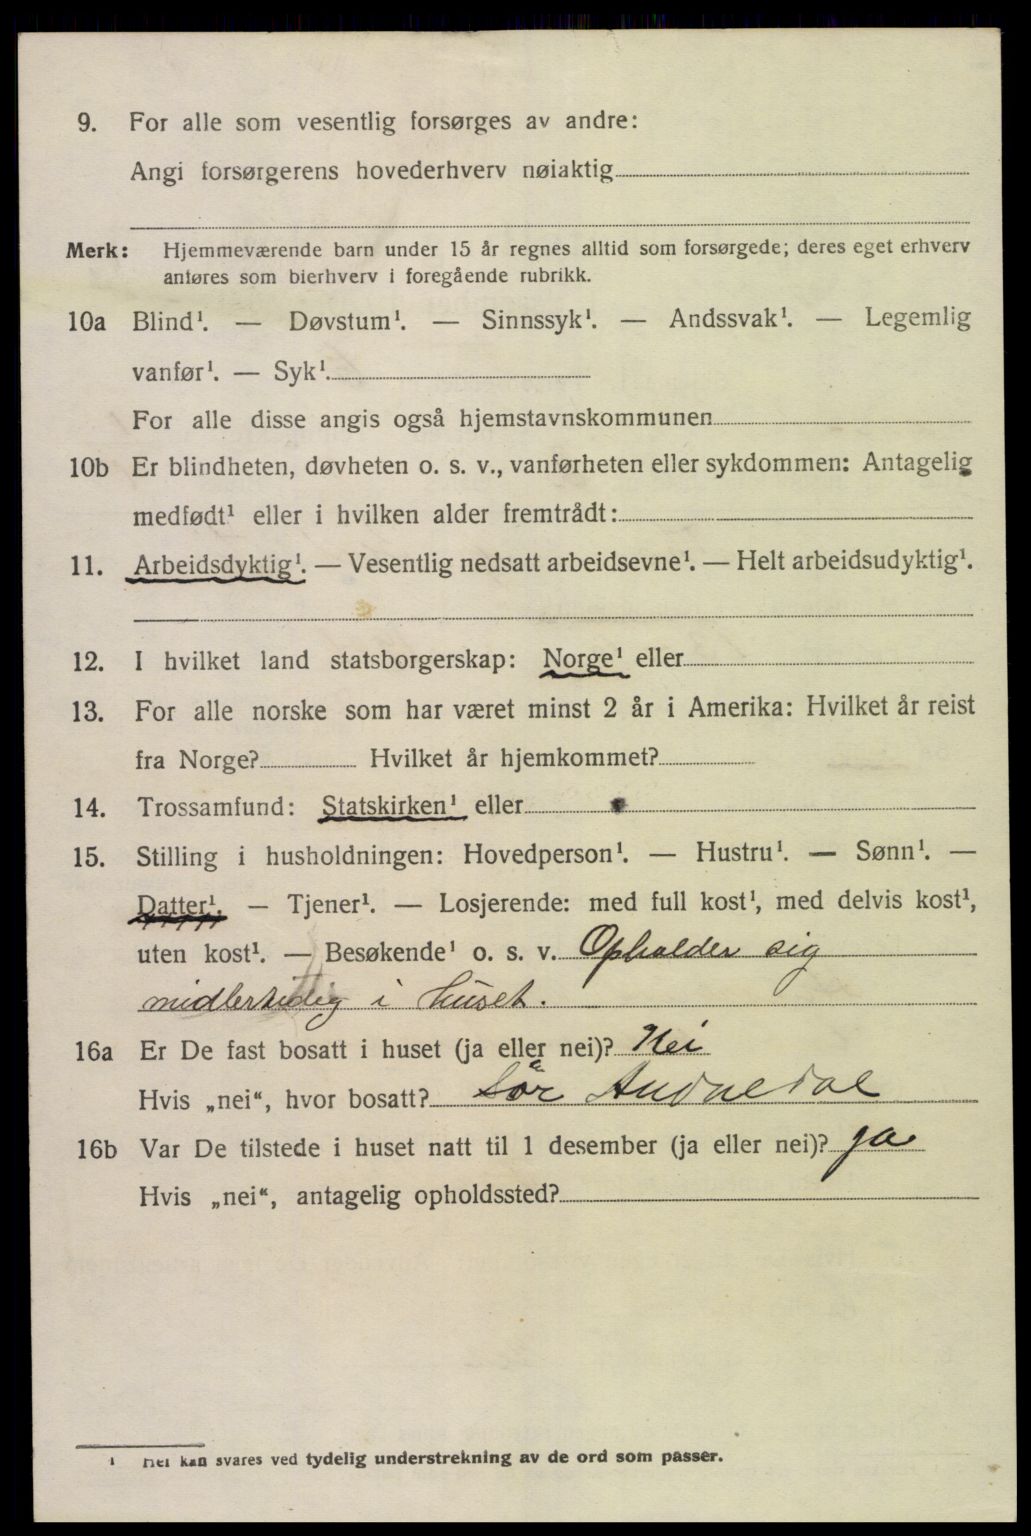 9. For alle som vesentlig forsørges av andre:
Angi forsørgerens hovederhverv nøiaktig
Merk: Hjemmeværende barn under 15 år regnes alltid som forsørgede; deres eget erhverv
anføres som bierhverv i foregående rubrikk.
10a Blind¹. — Døvstum¹. — Sinnssyk¹. — Andssvak¹. — Legemlig
vanfør¹. — Syk¹.
For alle disse angis også hjemstavnskommunen
10b Er blindheten, døvheten o. s. v., vanførheten eller sykdommen: Antagelig
medfødt¹ eller i hvilken alder fremtrådt:
11. Arbeidsdyktig¹. — Vesentlig nedsatt arbeidsevne¹. — Helt arbeidsudyktig¹.
12. I hvilket land statsborgerskap: Norge¹ eller
13. For alle norske som har været minst 2 år i Amerika: Hvilket år reist
fra Norge? Hvilket år hjemkommet?
14. Trossamfund: Statskirken¹ eller
15. Stilling i husholdningen: Hovedperson¹. — Hustru¹. — Sønn¹. —
Datter¹. — Tjener¹. — Losjerende: med full kost¹, med delvis kost¹,
uten kost¹. — Besøkende¹ o. s. v. Opholder sig
midlertidig i huset.
16a Er De fast bosatt i huset (ja eller nei)? Nei
Hvis „nei“, hvor bosatt? Sør Audnedal
16b Var De tilstede i huset natt til 1 desember (ja eller nei)? ja
Hvis „nei“, antagelig opholdssted?
¹ Her kan svares ved tydelig understrekning av de ord som passer.